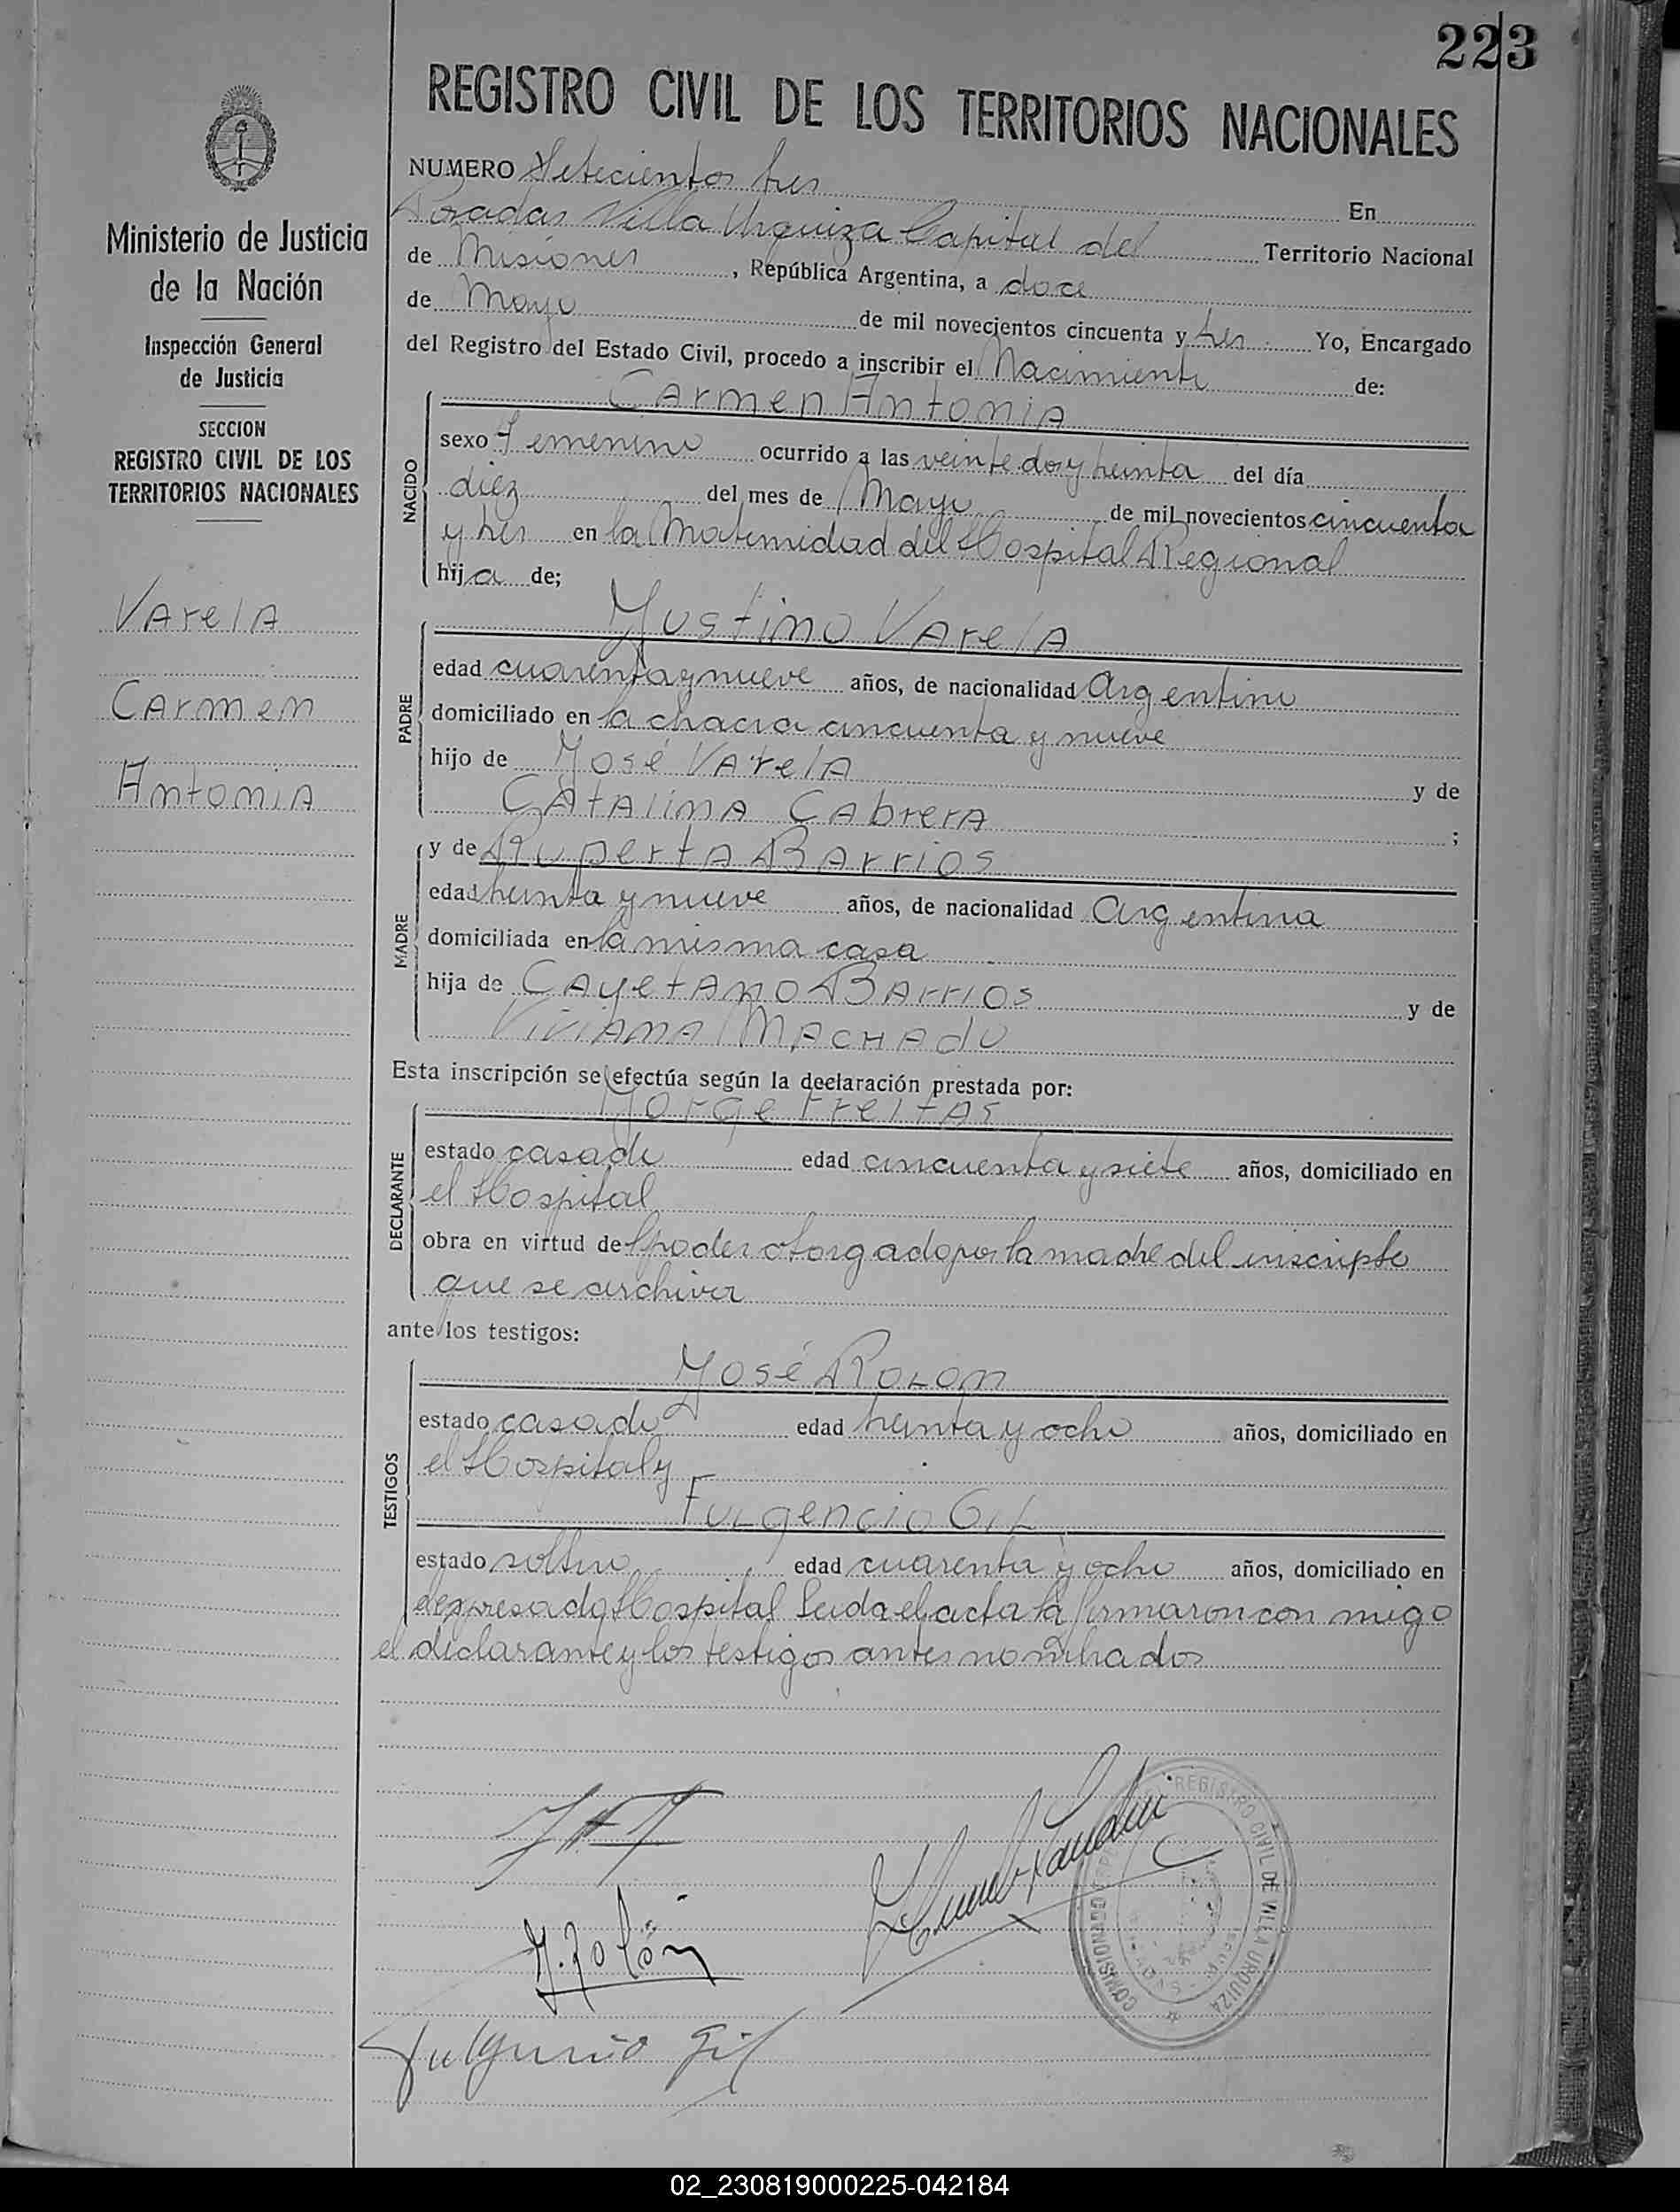 223
REGISTRO CIVIL DE LOS TERRITORIOS NACIONALES
Ministerio de Justicia
de la Nación
Inspección General
de Justicia
SECCION
REGISTRO CIVIL DE LOS
TERRITORIOS NACIONALES
Varela
Carmen
Antonia
NUMERO Setecientos tres En
Posadas Villa Urquiza Capital del Territorio Nacional
de Misiones, República Argentina, a doce
de Mayo de mil novecientos cincuenta y tres Yo, Encargado
del Registro del Estado Civil, procedo a inscribir el Nacimiento de:
NACIDO
Carmen Antonia
sexo Femenino ocurrido a las veinte dos y treinta del día
diez del mes de Mayo de mil novecientos cincuenta
y tres en la Maternidad del Hospital Regional
hija de;
PADRE
Justino Varela
edad cuarenta y nueve años, de nacionalidad Argentino
domiciliado en la chacra cincuenta y nueve
hijo de José Varela y de
Catalina Cabrera ;
MADRE
y de Ruperta Barrios
edad treinta y nueve años, de nacionalidad Argentina
domiciliada en la misma casa
hija de Cayetano Barrios y de
Viviana Machado
Esta inscripción se efectúa según la declaración prestada por:
DECLARANTE
Jorge Freitas
estado casado edad cincuenta y siete años, domiciliado en
el Hospital
obra en virtud del poder otorgado por la madre del inscripto
que se archiva
ante los testigos:
TESTIGOS
José Rolon
estado casado edad treinta y ocho años, domiciliado en
el Hospital y
Fulgencio Gil
estado soltero edad cuarenta y ocho años, domiciliado en
el expresado Hospital Leida el acta la firmaron con migo
el declarante y los testigos antes nombrados
J. Rolón
Fulgencio Gil
REGISTRO CIVIL DE VILLA URQUIZA
02_230819000225-042184